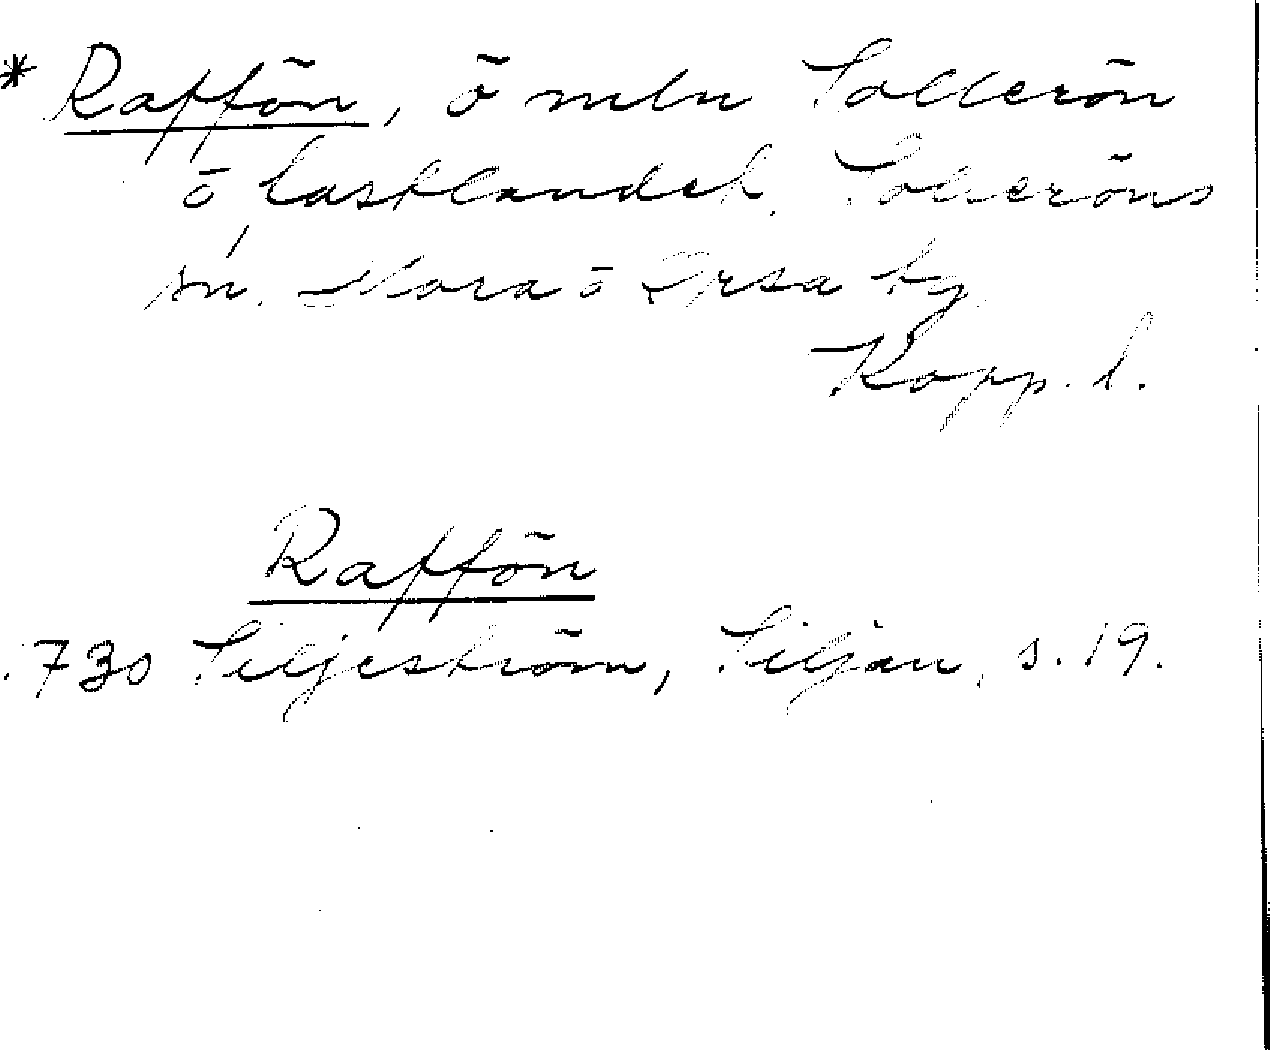 * Raffön, ö mln Sollerön
o fastlandet, Solleröns
sn. Mora o Orsa tg
Kopp. l.
Raffön
1730 Siljeström, Siljan, s. 19.